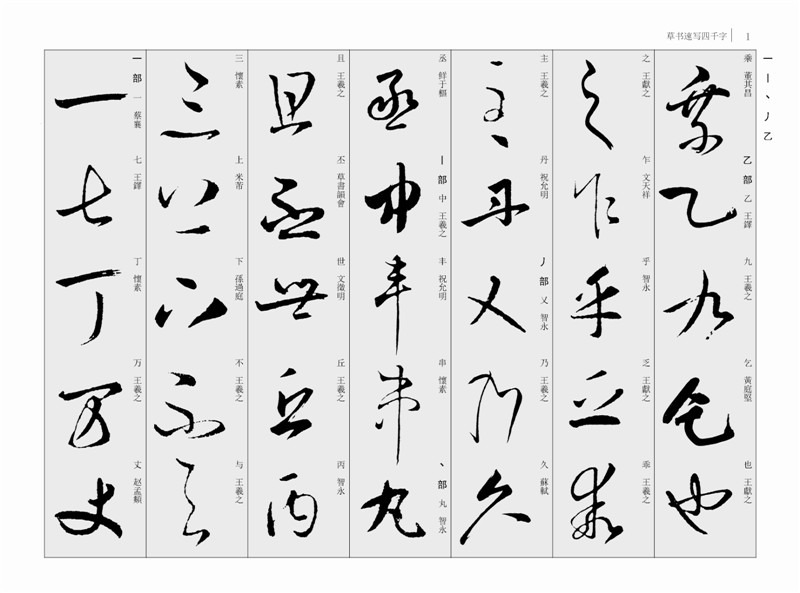 草书速写四千字 1
一丨丶丿乙
一部 一 蔡襄
七 王鐸
丁 懷素
万 王羲之
丈 赵孟頫
三 懷素
上 米芾
下 孫過庭
不 王羲之
与 王羲之
且 王羲之
丕 草書韻會
世 文徵明
丘 王羲之
丙 智永
丞 鲜于樞
丨部 中 王羲之
丰 祝允明
串 懷素
丶部 丸 智永
主 王羲之
丹 祝允明
丿部 乂 智永
乃 王羲之
久 蘇軾
之 王獻之
乍 文天祥
乎 智永
乏 王獻之
乖 王羲之
乘 董其昌
乙部 乙 王鐸
九 王羲之
乞 黃庭堅
也 王獻之